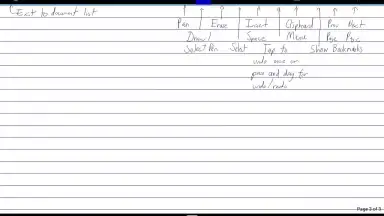 Exit to document list
Pen Erase Insert Clipboard Prev Next
Draw/ Space Menu Page Page
Select Pen Select Tap to Show Bookmarks
undo once or
press and drag for
undo/redo
Page 3 of 3